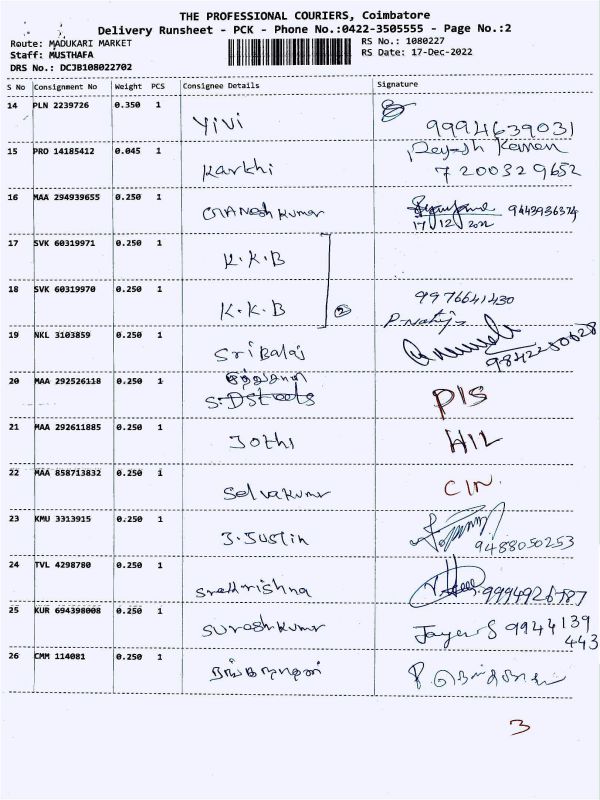 THE PROFESSIONAL COURIERS, Coimbatore
Delivery Runsheet - PCK - Phone No.:0422-3505555 - Page No.:2
Route: MADUKARI MARKET RS No.: 1080227
Staff: MUSTHAFA RS Date: 17-Dec-2022
DRS No.: DCJB108022702
S No Consignment No Weight PCS Consignee Details Signature
14 PLN 2239726 0.350 1 ViVi 9994639031
15 PRO 14185412 0.045 1 Karkhi
7200329652
16 MAA 294939655 0.250 1 GANesh Kumar 9443936374
17/12/2022
17 SVK 60319971 0.250 1 K.K.B
18 SVK 60319970 0.250 1 K.K.B 2 9976641430
19 NKL 3103859 0.250 1 Sri Balaj 9842250628
20 MAA 292526118 0.250 1 PIS
21 MAA 292611885 0.250 1 Jothi HIL
22 MAA 858713832 0.250 1 Selvakumar CIN
23 KMU 3313915 0.250 1 J.Justin 9488050253
24 TVL 4298780 0.250 1 Sreekrishna 9994926787
25 KUR 694398008 0.250 1 SureshKumar 9944139
443
26 CMM 114081 0.250 1
3